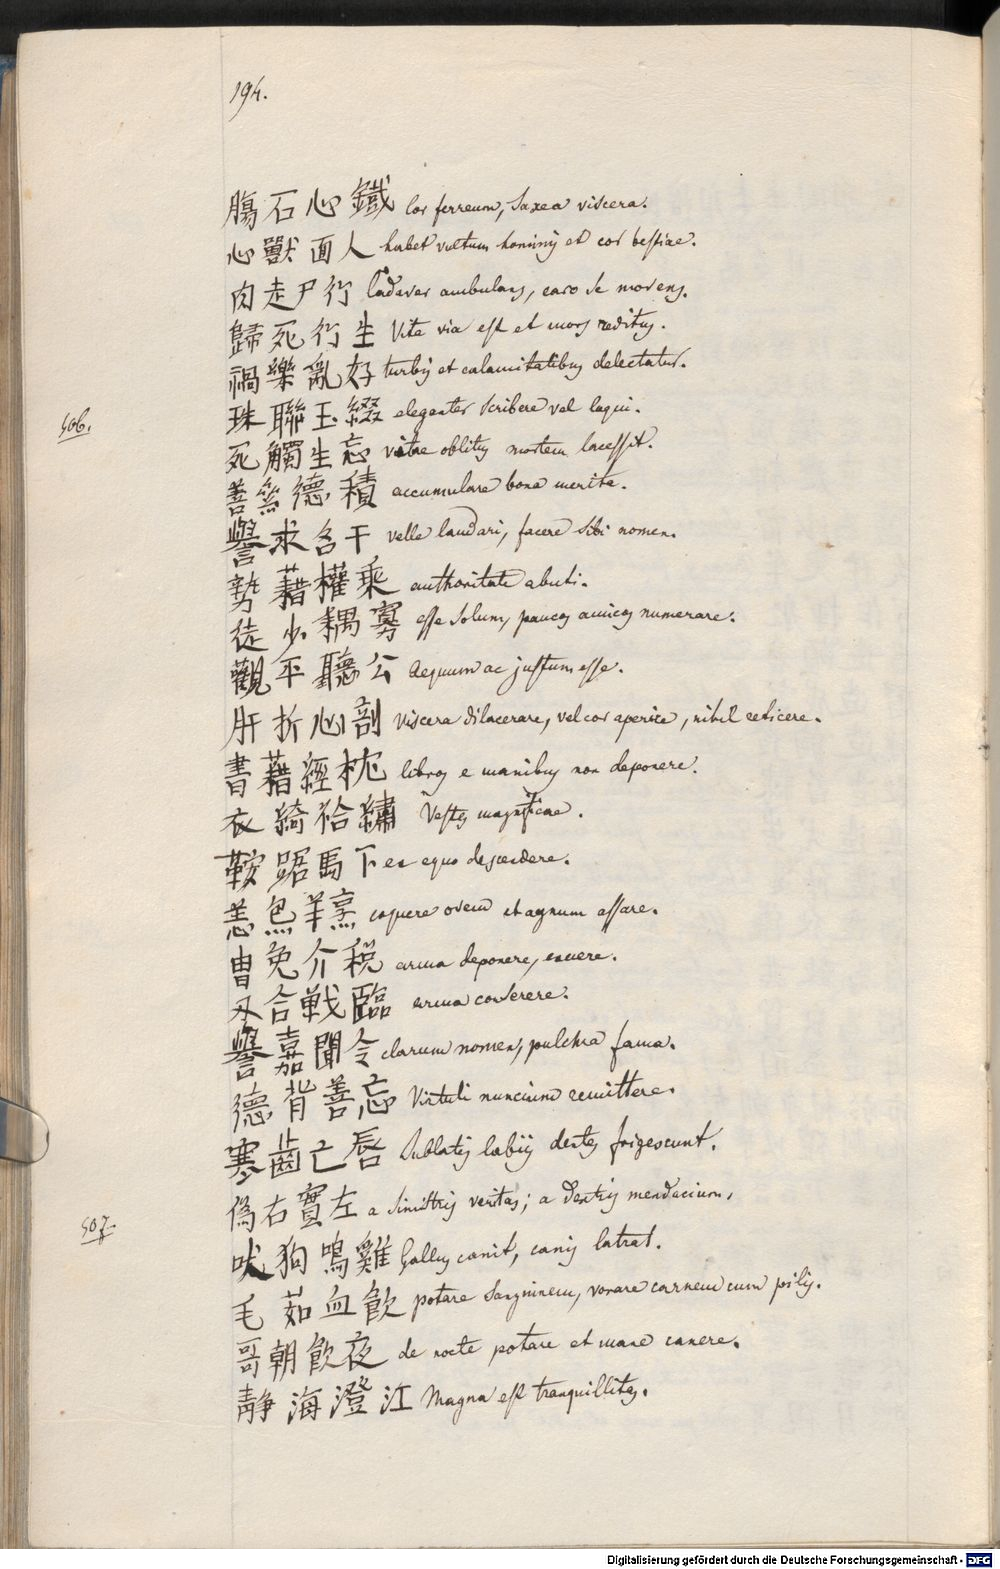 194.
腸石心鐵 Cor ferreum, Saxea viscera.
心獸面人 habet vultum hominis et cor bestiae.
肉走尸行 Cadaver ambulans, caro se movens.
歸死行生 Vita via est et mors reditus.
禍樂亂好 turbis et calamitatibus delectatur.
珠聯玉綴 eleganter scribere vel loqui.
506.
死觸生忘 vitae oblitus mortem lacessit.
善絫德積 accumulare bona merita.
譽求名干 velle laudari, facere sibi nomen.
勢藉權乘 authoritate abuti.
徒少耦寡 esse solum, paucos amicos numerare.
觀平聽公 Aequum ac justum esse.
肝折心剖 Viscera dilacerare, vel cor aperire, nihil reticere.
書藉經枕 libros e manibus non deponere.
衣綺袷繡 Vestes magnificae.
鞍踞馬下 ex equo descendere.
羔炰羊烹 coquere ovem et agnum assare.
冑免介稅 arma deponere, exuere.
刃合戰臨 arma conserere.
譽嘉聞令 clarum nomen, pulchra fama.
德背善忘 Virtuti nuncium remittere.
寒齒亡唇 Sublatis labiis dentes frigescunt.
僞右實左 a Sinistris veritas; a dextris mendacium.
507.
吠狗鳴雞 Gallus canit, canis latrat.
毛茹血飲 potare Sanguinem, vorare carnem cum pilis.
哥朝飲夜 de nocte potare et mane canere.
靜海澄江 Magna est tranquillitas.
Digitalisierung gefördert durch die Deutsche Forschungsgemeinschaft - DFG